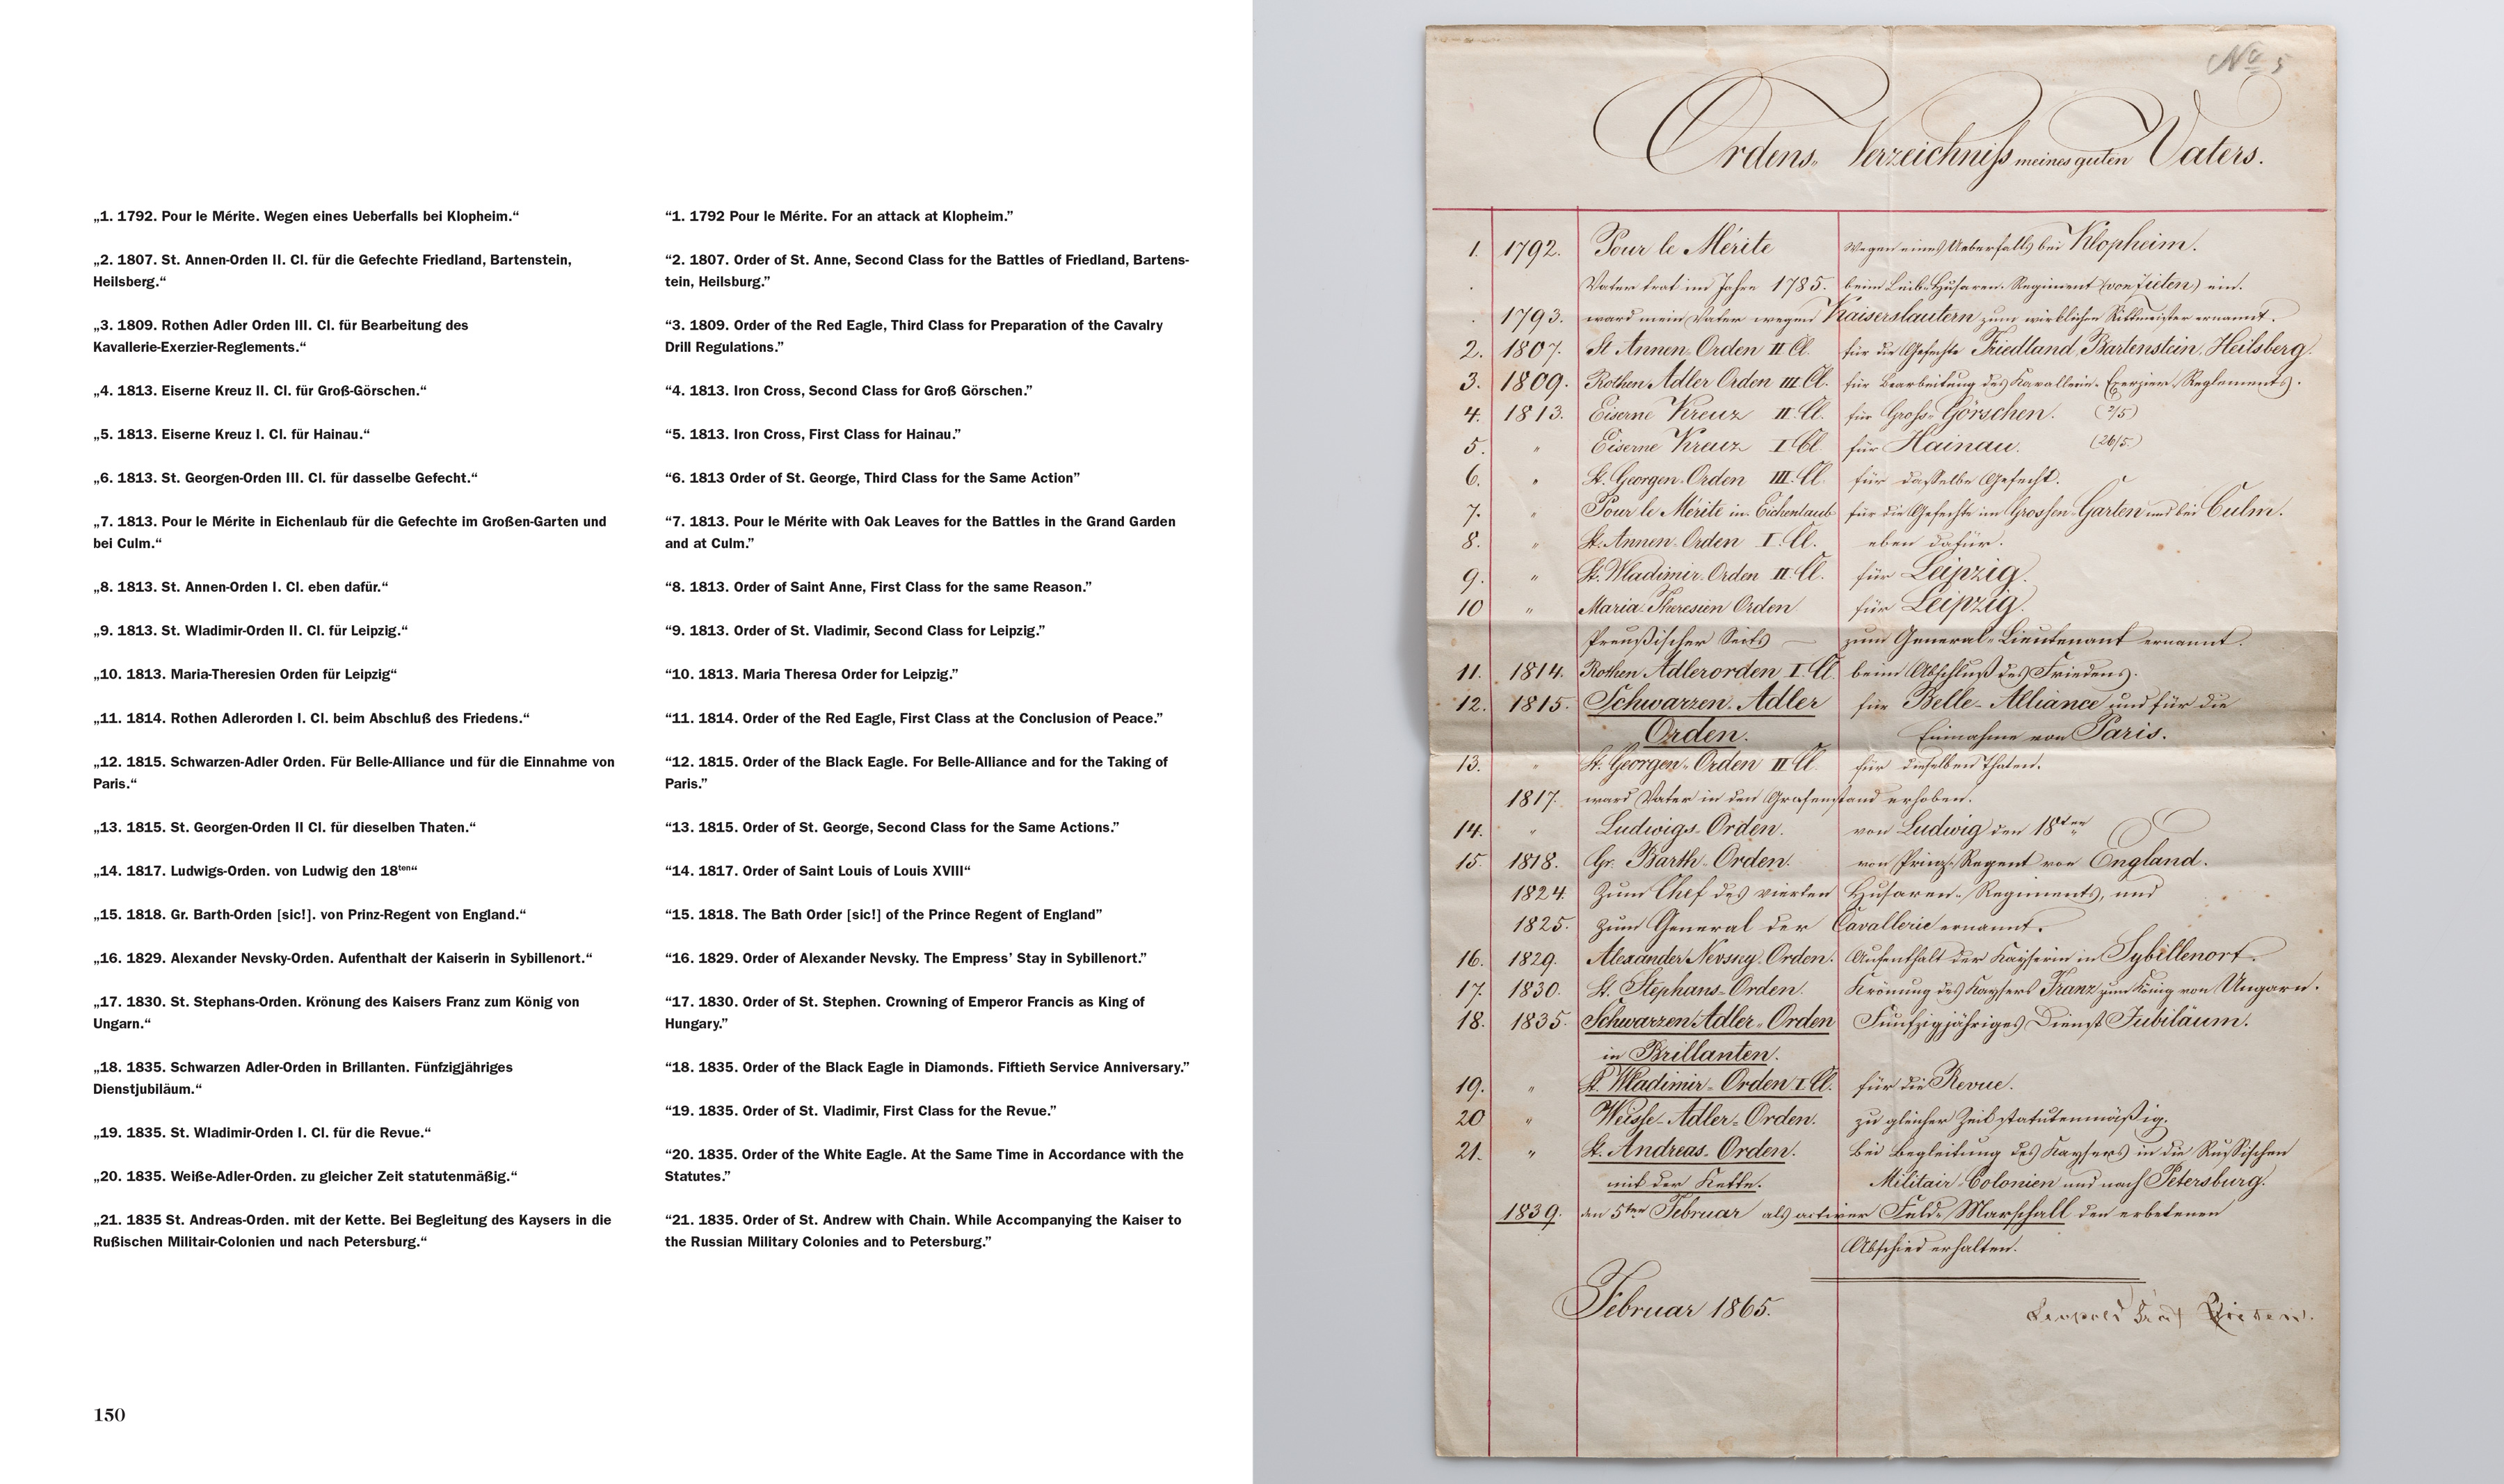 „1. 1792. Pour le Mérite. Wegen eines Ueberfalls bei Klopheim.“
„2. 1807. St. Annen-Orden II. Cl. für die Gefechte Friedland, Bartenstein,
Heilsberg.“
„3. 1809. Rothen Adler Orden III. Cl. für Bearbeitung des
Kavallerie-Exerzier-Reglements.“
„4. 1813. Eiserne Kreuz II. Cl. für Groß-Görschen.“
„5. 1813. Eiserne Kreuz I. Cl. für Hainau.“
„6. 1813. St. Georgen-Orden III. Cl. für dasselbe Gefecht.“
„7. 1813. Pour le Mérite in Eichenlaub für die Gefechte im Großen-Garten und
bei Culm.“
„8. 1813. St. Annen-Orden I. Cl. eben dafür.“
„9. 1813. St. Wladimir-Orden II. Cl. für Leipzig.“
„10. 1813. Maria-Theresien Orden für Leipzig“
„11. 1814. Rothen Adlerorden I. Cl. beim Abschluß des Friedens.“
„12. 1815. Schwarzen-Adler Orden. Für Belle-Alliance und für die Einnahme von
Paris.“
„13. 1815. St. Georgen-Orden II Cl. für dieselben Thaten.“
„14. 1817. Ludwigs-Orden. von Ludwig den 18ten“
„15. 1818. Gr. Barth-Orden [sic!]. von Prinz-Regent von England.“
„16. 1829. Alexander Nevsky-Orden. Aufenthalt der Kaiserin in Sybillenort.“
„17. 1830. St. Stephans-Orden. Krönung des Kaisers Franz zum König von
Ungarn.“
„18. 1835. Schwarzen Adler-Orden in Brillanten. Fünfzigjähriges
Dienstjubiläum.“
„19. 1835. St. Wladimir-Orden I. Cl. für die Revue.“
„20. 1835. Weiße-Adler-Orden. zu gleicher Zeit statutenmäßig.“
„21. 1835 St. Andreas-Orden. mit der Kette. Bei Begleitung des Kaysers in die
Rußischen Militair-Colonien und nach Petersburg.“
“1. 1792 Pour le Mérite. For an attack at Klopheim.”
“2. 1807. Order of St. Anne, Second Class for the Battles of Friedland, Bartens-
tein, Heilsburg.”
“3. 1809. Order of the Red Eagle, Third Class for Preparation of the Cavalry
Drill Regulations.”
“4. 1813. Iron Cross, Second Class for Groß Görschen.”
“5. 1813. Iron Cross, First Class for Hainau.”
“6. 1813 Order of St. George, Third Class for the Same Action”
“7. 1813. Pour le Mérite with Oak Leaves for the Battles in the Grand Garden
and at Culm.”
“8. 1813. Order of Saint Anne, First Class for the same Reason.”
“9. 1813. Order of St. Vladimir, Second Class for Leipzig.”
“10. 1813. Maria Theresa Order for Leipzig.”
“11. 1814. Order of the Red Eagle, First Class at the Conclusion of Peace.”
“12. 1815. Order of the Black Eagle. For Belle-Alliance and for the Taking of
Paris.”
“13. 1815. Order of St. George, Second Class for the Same Actions.”
“14. 1817. Order of Saint Louis of Louis XVIII“
“15. 1818. The Bath Order [sic!] of the Prince Regent of England”
“16. 1829. Order of Alexander Nevsky. The Empress’ Stay in Sybillenort.”
“17. 1830. Order of St. Stephen. Crowning of Emperor Francis as King of
Hungary.”
“18. 1835. Order of the Black Eagle in Diamonds. Fiftieth Service Anniversary.”
“19. 1835. Order of St. Vladimir, First Class for the Revue.”
“20. 1835. Order of the White Eagle. At the Same Time in Accordance with the
Statutes.”
“21. 1835. Order of St. Andrew with Chain. While Accompanying the Kaiser to
the Russian Military Colonies and to Petersburg.”
150
No 5
Ordens-Verzeichniß meines guten Vaters.
1. 1792. Pour le Mérite wegen eines Ueberfalls bei Klopheim.
Vater trat im Jahre 1785. beim Leib-Husaren-Regiment (von Zieten) ein.
1793. ward mein Vater wegen Kaiserslautern zum wirklichen Rittmeister ernannt.
2. 1807. St Annen-Orden II Cl. für die Gefechte Friedland, Bartenstein, Heilsberg.
3. 1809. Rothen Adler Orden III Cl. für Bearbeitung des Kavallerie-Exerzier-Reglements.
4. 1813. Eiserne Kreuz II. Cl. für Gross-Görschen. (2/5)
5. " Eiserne Kreuz I Cl für Hainau. (26/5.)
6. " St. Georgen-Orden III. Cl. für dasselbe Gefecht.
7. " Pour le Mérite in Eichenlaub für die Gefechte im Grossen-Garten und bei Culm.
8. " St. Annen-Orden I. Cl. eben dafür.
9. " St. Wladimir-Orden II. Cl. für Leipzig.
10 " Maria-Theresien Orden für Leipzig.
Preußischer Seits — zum General-Lieutenant ernannt.
11. 1814. Rothen Adlerorden I. Cl. beim Abschluß des Friedens.
12. 1815. Schwarzen-Adler für Belle-Alliance und für die
Orden. Einnahme von Paris.
13. " St. Georgen-Orden II Cl. für dieselben Thaten.
1817. ward Vater in den Grafenstand erhoben.
14. " Ludwigs-Orden. von Ludwig den 18ten
15. 1818. Gr. Barth-Orden. von Prinz-Regent von England.
1824. zum Chef des vierten Husaren-Regiments, und
1825. zum General der Cavallerie ernannt.
16. 1829. Alexander Nevsky-Orden. Aufenthalt der Kayserin in Sybillenort.
17. 1830. St. Stephans-Orden. Krönung des Kaysers Franz zum König von Ungarn.
18. 1835. Schwarzen Adler-Orden Fünfzigjähriges Dienst Jubiläum.
in Brillanten.
19. " St. Wladimir-Orden I Cl. für die Revue.
20 " Weisse-Adler-Orden. zu gleicher Zeit statutenmäßig.
21. " St. Andreas-Orden. bei Begleitung des Kaysers in die Russischen
mit der Kette. Militair-Colonien und nach Petersburg.
1839. den 5ten Februar als activer Feld-Marschall den erbetenen
Abschied erhalten.
Februar 1865. Leopold Graf Zieten.